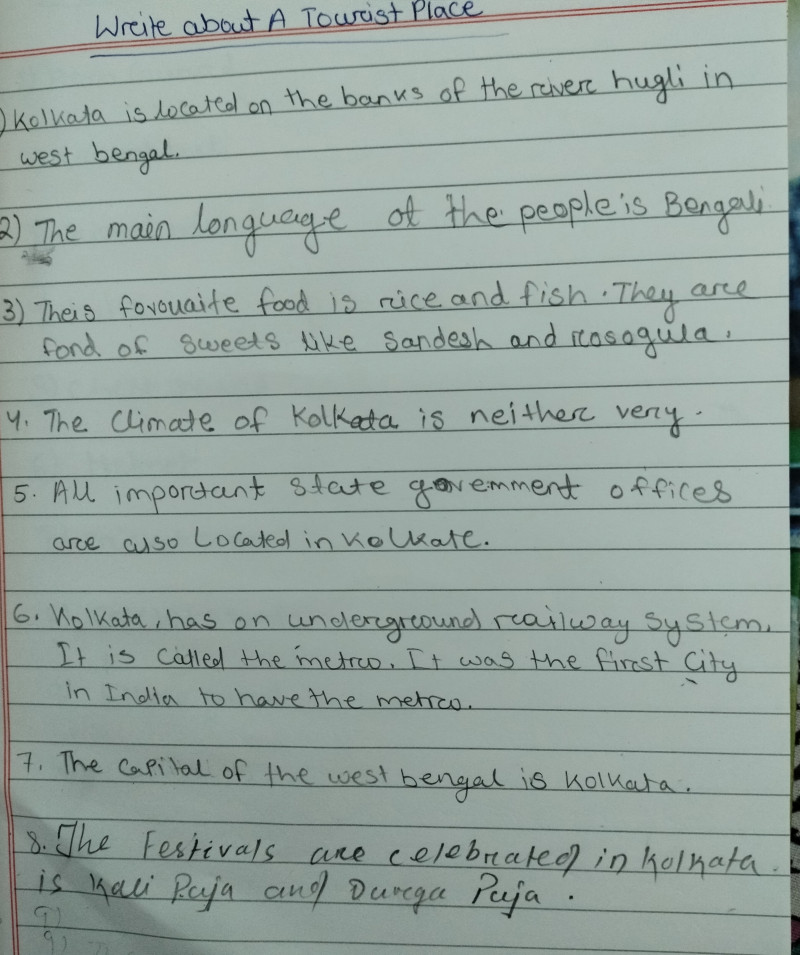 Write about A Tourist Place
1) Kolkata is located on the banks of the river hugli in
west bengal.
2) The main longuage ot the people is Bengali
3) Theis forouaite food is rice and fish. They are
fond of sweets like Sandesh and rosogula.
4. The climate of Kolkata is neither very.
5. All important state government offices
are also Located in Kolkate.
6. Kolkata, has on underground railway system.
It is called the metro. It was the first City
in India to have the metro.
7. The capital of the west bengal is Kolkata.
8. The Festivals are celebrated in Kolkata.
is Kali Puja and Durga Puja.
9)
9)